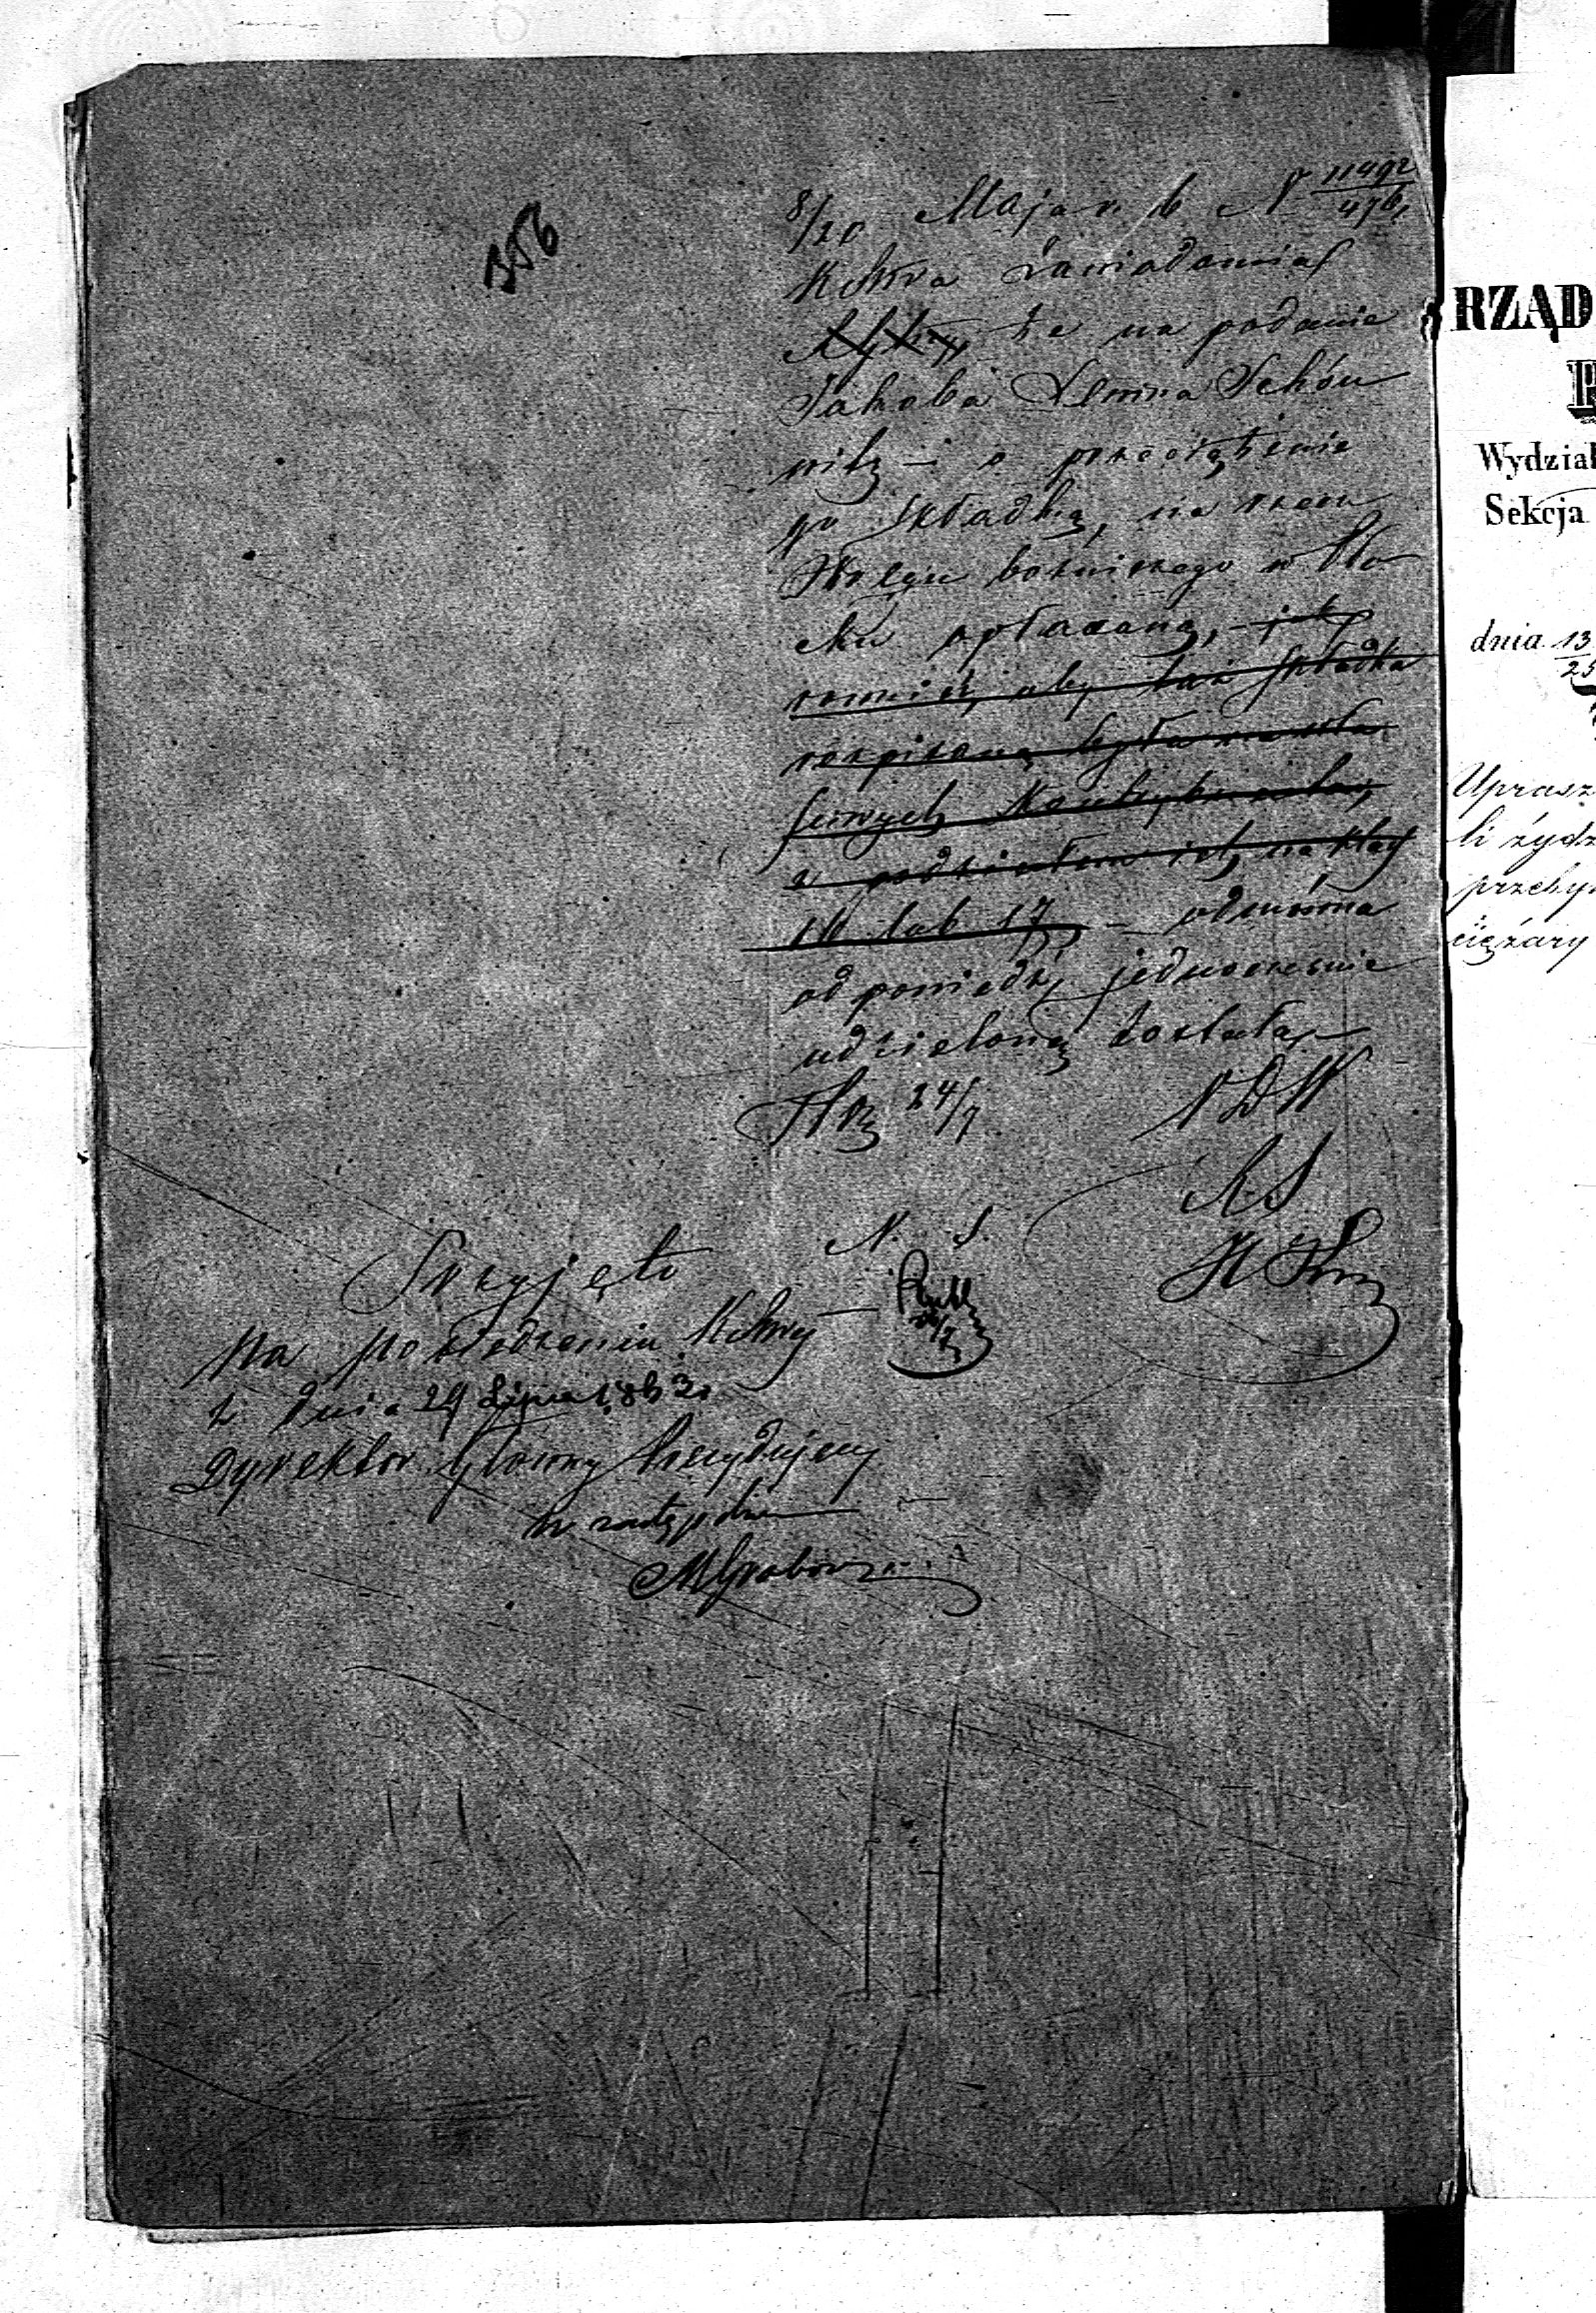 356
8/20 Maja r. b. N 11492/4761
KRSwa zawiadamia
że na podanie
Jakóba Lewina Schön
witz – o przeciążenie
go składką, na rzecz
Okręgu bożniczego w Pło
cku opłacaną, – jak
rownież, aby taż składka
rozpisaną była na kla
sowych kontrybuentów,
z podziałem ich na klas
16 lub 17, – odmowna
odpowiedź, jednocześnie
udzieloną została –
24/7 N D W
R S
N. S.
Przyjęto
Na posiedzeniu KRSwej
z dnia 24 Lipca 1863 r.
Dyrektor Główny Prezydujący
w zastępstwie
MGrabowski
RZĄD
Wydział
Sekcja
dnia 13/25
Uprasz
li żydz
przeby
ciężary